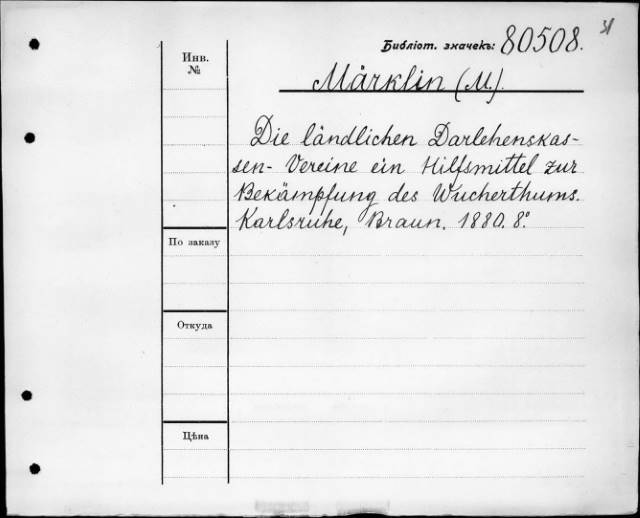 31
Библіот. значекъ: 80508.
Инв.
№
Märklin (M.)
Die ländlichen Darlehenskas-
sen-Vereine ein Hilfsmittel zur
Bekämpfung des Wucherthums.
Karlsruhe, Braun. 1880. 8°.
По заказу
Откуда
Цѣна